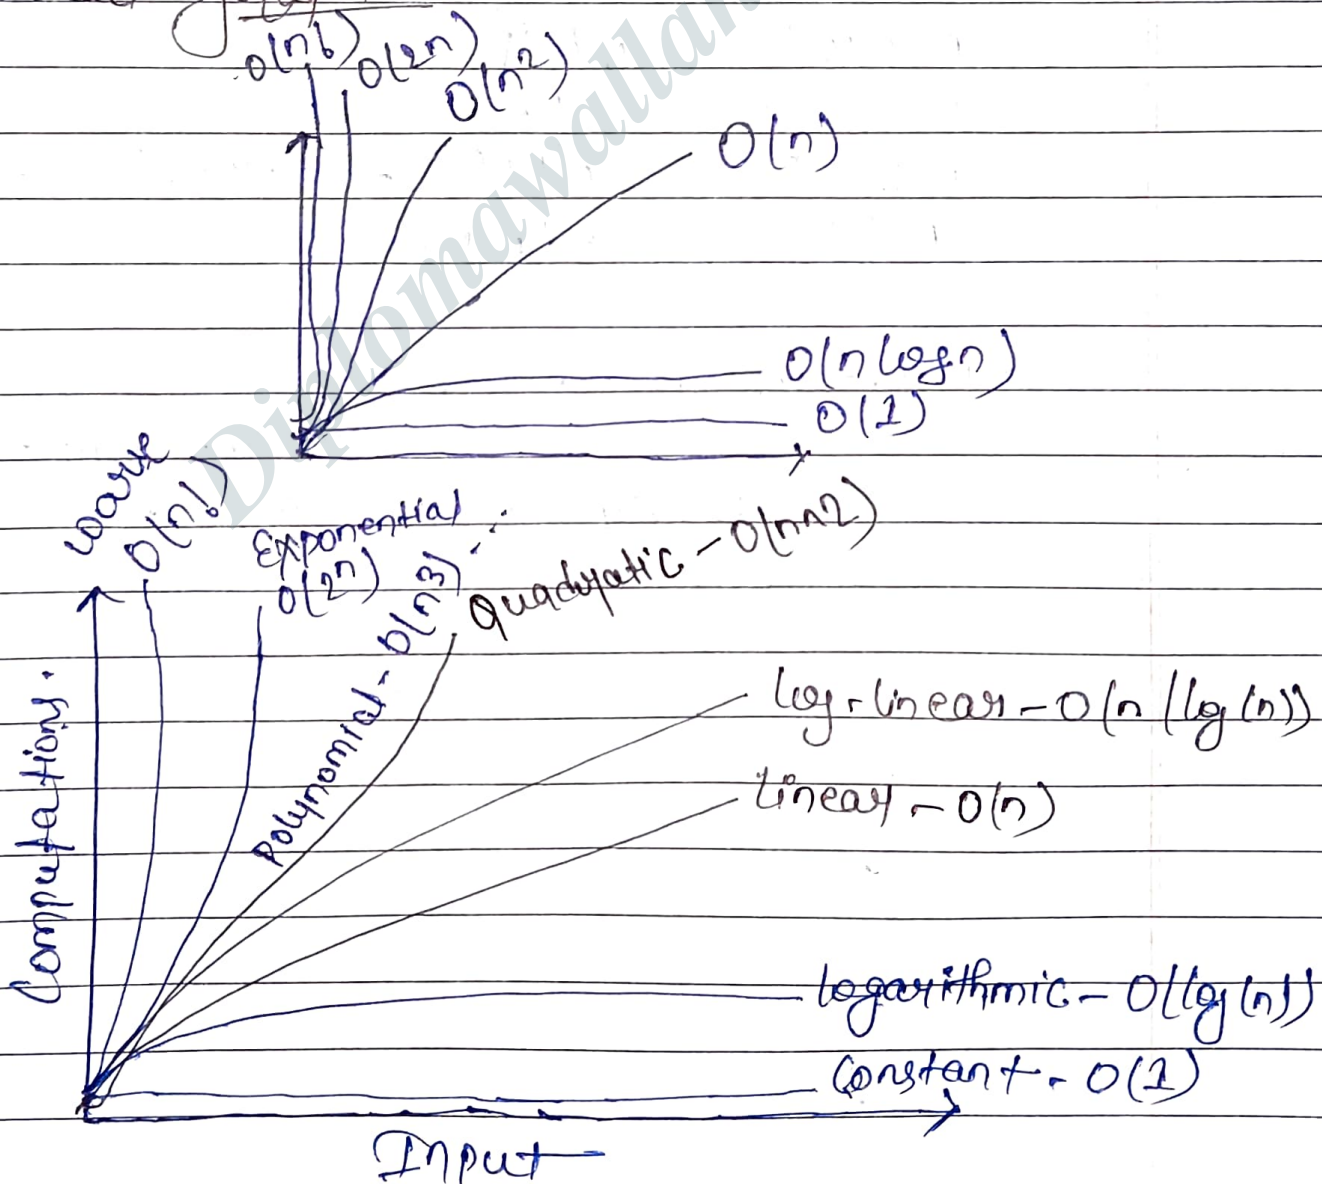 O(n!)
O(2n)
O(n2)
O(n)
O(n logn)
O(1)
Diplomawallah
worse
O(n!)
Exponential
O(2^n)
Polynomial - O(n3)
Quadratic - O(n^2)
log-linear - O(n (log(n))
linear - O(n)
logarithmic - O(log(n))
Constant - O(1)
Computations.
Input